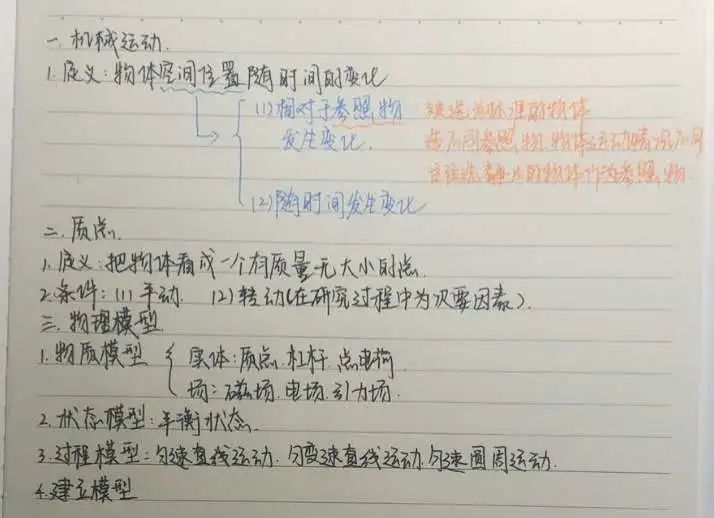 一. 机械运动.
1. 定义: 物体空间位置随时间的变化
(1) 相对于参照物 被选为标准的物体
发生变化. 选不同参照物, 物体运动情况不同
往往选静止的物体作为参照物.
(2) 随时间发生变化
二. 质点.
1. 定义: 把物体看成一个有质量无大小的点.
2. 条件: (1) 平动. (2) 转动(在研究过程中为次要因素).
三. 物理模型
1. 物质模型 { 实体: 质点. 杠杆. 点电荷
场: 磁场. 电场. 引力场.
2. 状态模型: 平衡状态.
3. 过程模型: 匀速直线运动. 匀变速直线运动. 匀速圆周运动.
4. 建立模型